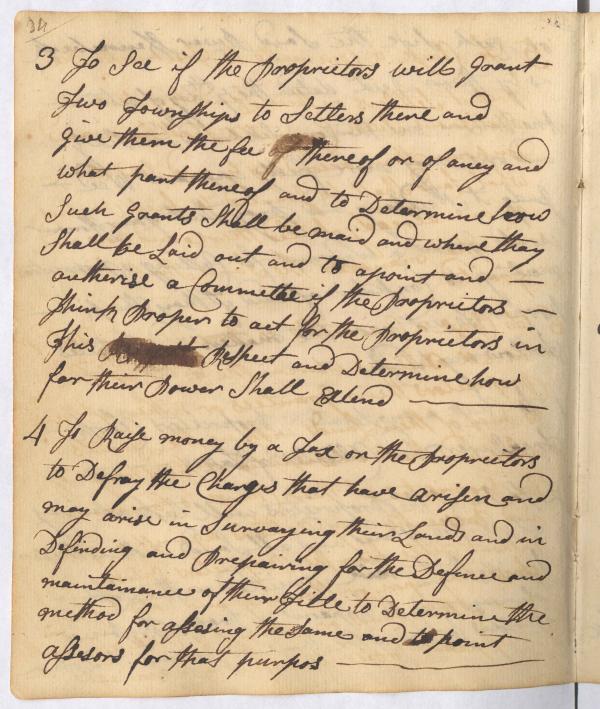 34
3 To See if the Proprietors will grant
Two Townships to Setlers there and
give them the fee thereof or of aney and
what part thereof and to Determine how
Such grants Shall be maid and where thay
Shall be Laid out and to apoint and —
autherise a Committee if the Proprietors —
think Proper to act for the Proprietors in
this Respect and Determine how
far their Power Shall Extend —
4 To Raise money by a Tax on the Proprietors
to Defray the Charges that have arisen and
may arise in Survaying their Lands and in
Defending and Prepairing for the Defence and
maintainance of their Title to Determine the
method for assesing the Same and to apoint
assesors for that purpos —